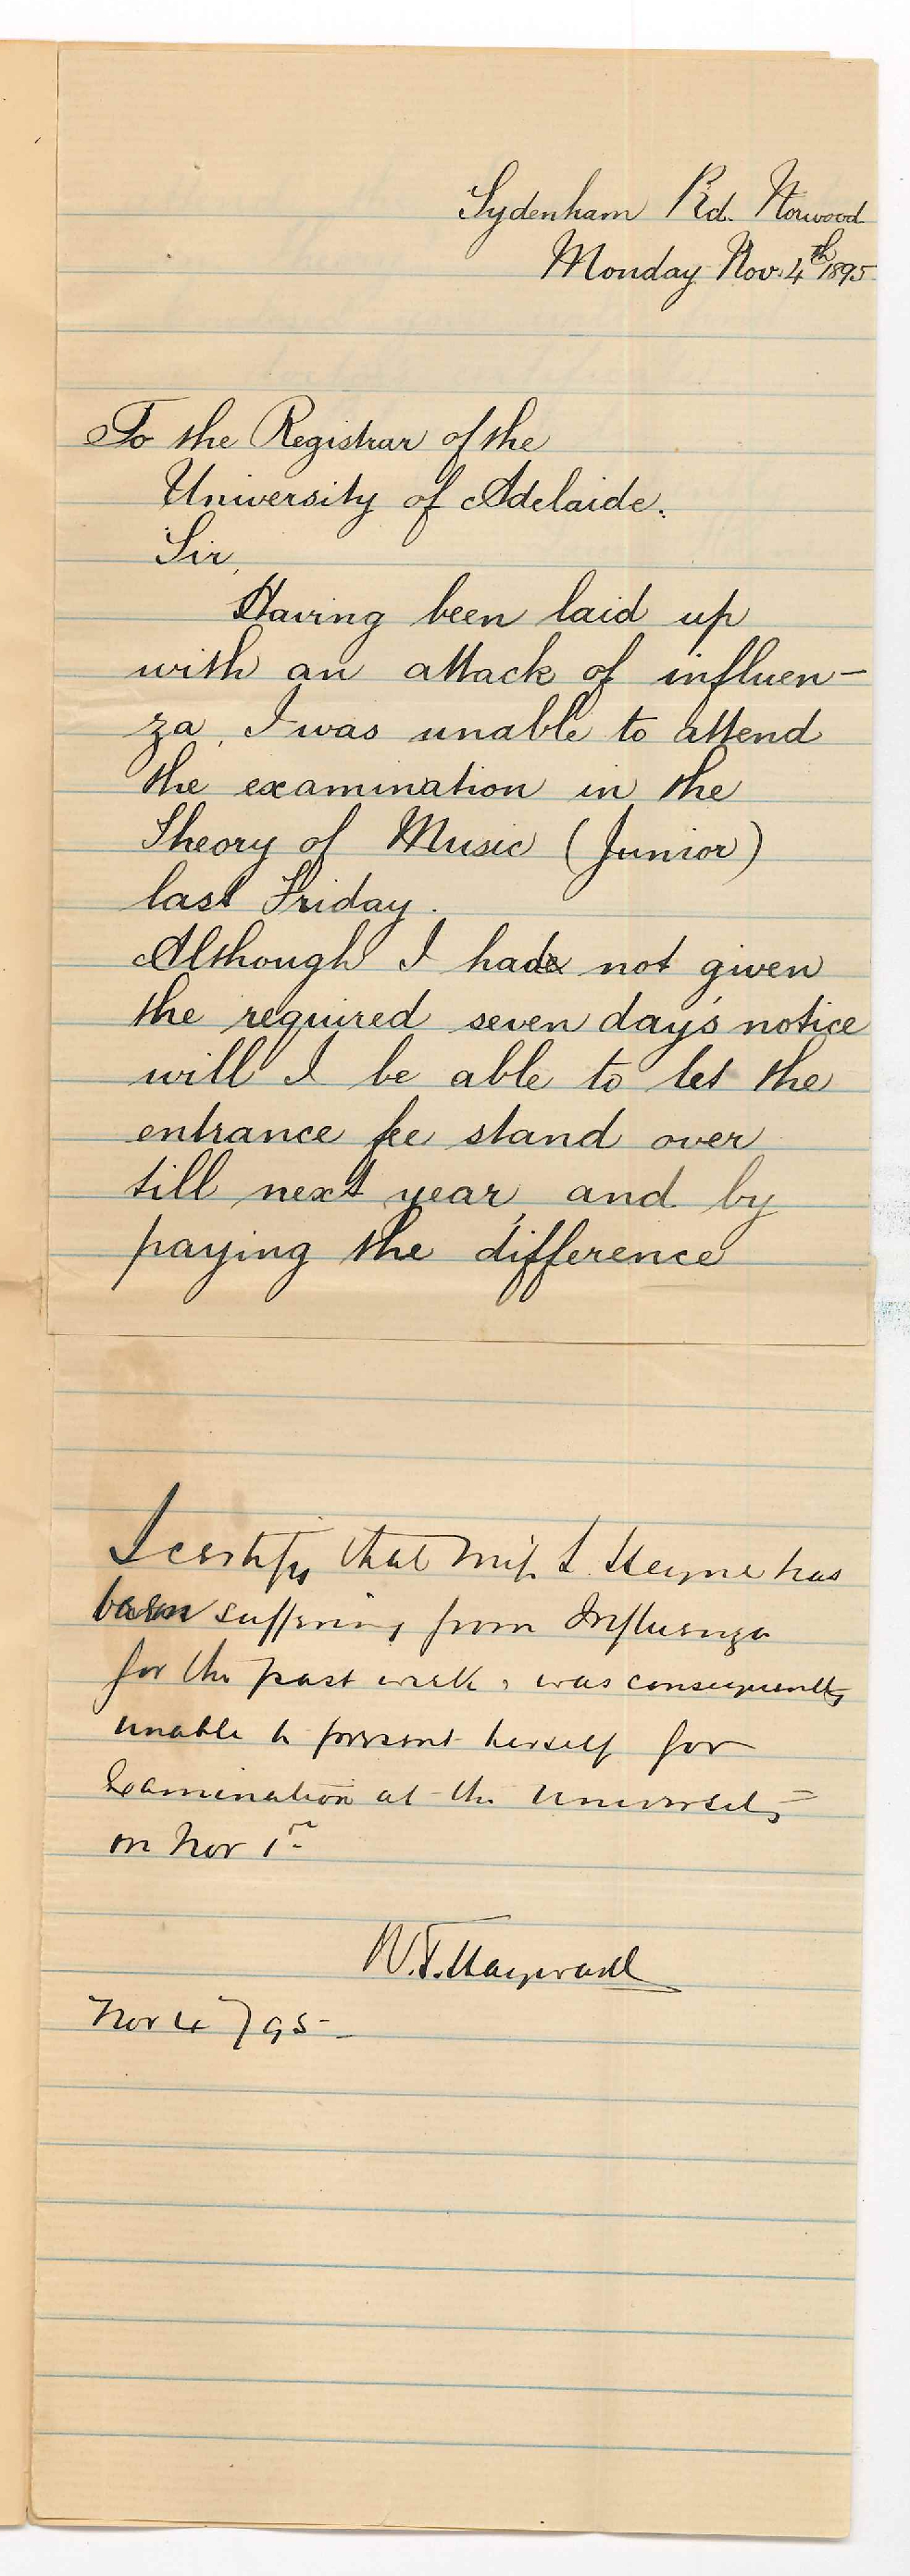 Sydenham Rd. Norwood
Monday Nov. 4th 1895.
To the Registrar of the
University of Adelaide.
Sir,
Having been laid up
with an attack of influen-
za, I was unable to attend
the examination in the
Theory of Music (Junior)
last Friday.
Although I had not given
the required seven day's notice
will I be able to let the
entrance fee stand over
till next year, and by
paying the difference
I certify that Miss L. Heyne has
been suffering from Influenza
for the past week & was consequently
unable to present herself for
Examination at the University
on Nov 1st
W.T. Hayward
Nov 4 / 95